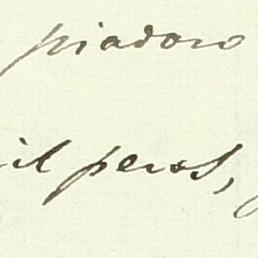 piadoso
il peros,